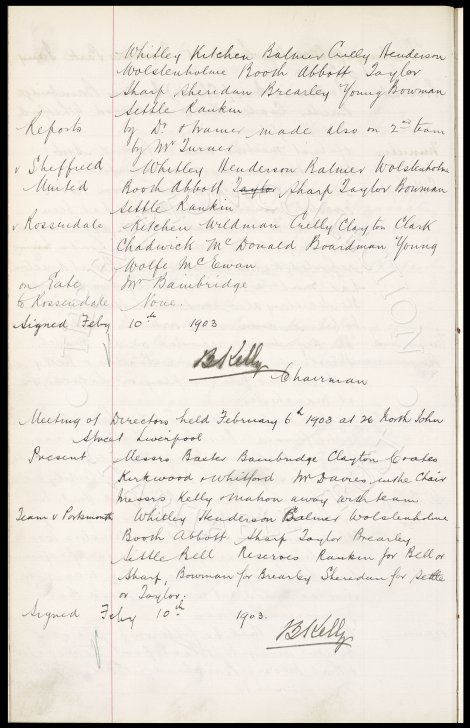 Whitley Kitchen Balmer Crelly Henderson
Wolstenholme Booth Abbott Taylor
Sharp Sheridan Brearley Young Bowman
Settle Rankin
Reports by Dr & trainer made also on 2nd team
by Mr Turner
v Sheffield Whitley Henderson Balmer Wolstenholme
United Booth Abbott Taylor Sharp Taylor Bowman
Settle Rankin
v Rossendale Kitchen Wildman Crelly Clayton Clark
Chadwick McDonald Boardman Young
Wolfe McEwan
on Gate Mr Bainbridge
to Rossendale None.
Signed Feby 10th 1903
B Kelly
Chairman
Meeting of Directors held February 6th 1903 at 26 North John
Street Liverpool
Present Messrs Baxter Bainbridge Clayton Coates
Kirkwood & Whitford Mr Davies in the Chair
Messrs Kelly & Mahon away with team
Team v Portsmouth Whitley Henderson Balmer Wolstenholme
Booth Abbott Sharp Taylor Brearley
Settle Bell Reserves Rankin for Bell or
Sharp, Bowman for Brearley Sheridan for Settle
or Taylor.
Signed Feby 10th 1903.
B Kelly